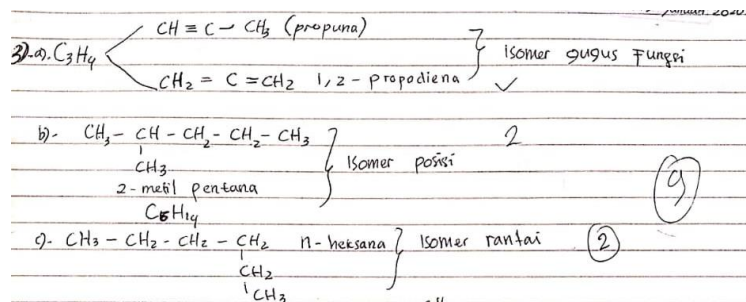 Januari 2020
3). a). C3H4 CH ≡ C - CH3 (propuna)
CH2 = C = CH2 1,2 - propadiena
Isomer gugus Fungsi
b). CH3 - CH - CH2 - CH2 - CH3
CH3
2 - metil pentana
C6H14
Isomer posisi
2
9
c). CH3 - CH2 - CH2 - CH2 n - heksana Isomer rantai 2
CH2
CH3